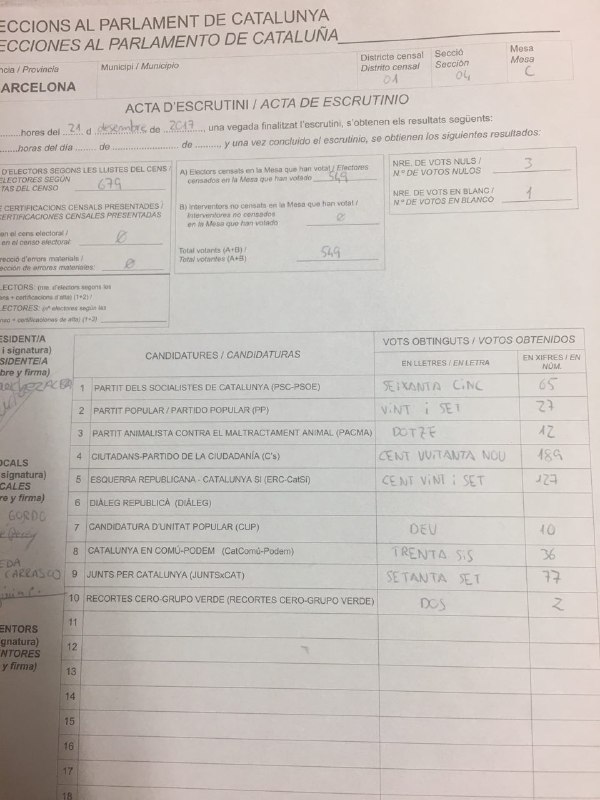 ECCIONS AL PARLAMENT DE CATALUNYA
ECCIONES AL PARLAMENTO DE CATALUÑA
ncia / Provincia
Municipi / Municipio
Districte censal
Distrito censal
01
Secció
Sección
04
Mesa
Mesa
C
ARCELONA
ACTA D'ESCRUTINI / ACTA DE ESCRUTINIO
hores del 21 d desembre de 2017, una vegada finalitzat l'escrutini, s'obtenen els resultats següents:
horas del día de de , y una vez concluido el escrutinio, se obtienen los siguientes resultados:
D'ELECTORS SEGONS LES LLISTES DEL CENS /
ELECTORES SEGÚN
TAS DEL CENSO 679
E CERTIFICACIONS CENSALS PRESENTADES /
CERTIFICACIONES CENSALES PRESENTADAS
en el cens electoral /
en el censo electoral: Ø
recció d'errors materials /
ección de errores materiales: Ø
LECTORS: (nre. d'electors segons les
ens + certificacions d'alta) (1+2) /
LECTORES: (nº electores según las
enso + certificaciones de alta) (1+2)
A) Electors censats en la Mesa que han votat / Electores
censados en la Mesa que han votado 549
B) Interventors no censats en la Mesa que han votat /
Interventores no censados
en la Mesa que han votado Ø
Total votants (A+B) /
Total votantes (A+B) 549
NRE. DE VOTS NULS /
N.º DE VOTOS NULOS 3
NRE. DE VOTS EN BLANC /
N.º DE VOTOS EN BLANCO 1
ESIDENT/A
i signatura)
SIDENTE/A
bre y firma)
OCALS
signatura)
CALES
re y firma)
GORDO
EDA
CARRASCO
ENTORS
ignatura)
NTORES
y firma)
CANDIDATURES / CANDIDATURAS
VOTS OBTINGUTS / VOTOS OBTENIDOS
EN LLETRES / EN LETRA
EN XIFRES / EN NÚM.
1 PARTIT DELS SOCIALISTES DE CATALUNYA (PSC-PSOE) SEIXANTA CINC 65
2 PARTIT POPULAR / PARTIDO POPULAR (PP) VINT i SET 27
3 PARTIT ANIMALISTA CONTRA EL MALTRACTAMENT ANIMAL (PACMA) DOTZE 12
4 CIUTADANS-PARTIDO DE LA CIUDADANÍA (C's) CENT VUITANTA NOU 189
5 ESQUERRA REPUBLICANA - CATALUNYA SI (ERC-CatSí) CENT VINT i SET 127
6 DIÀLEG REPUBLICÀ (DIÀLEG)
7 CANDIDATURA D'UNITAT POPULAR (CUP) DEU 10
8 CATALUNYA EN COMÚ-PODEM (CatComú-Podem) TRENTA SIS 36
9 JUNTS PER CATALUNYA (JUNTSxCAT) SETANTA SET 77
10 RECORTES CERO-GRUPO VERDE (RECORTES CERO-GRUPO VERDE) DOS 2
11
12
13
14
15
16
17
18